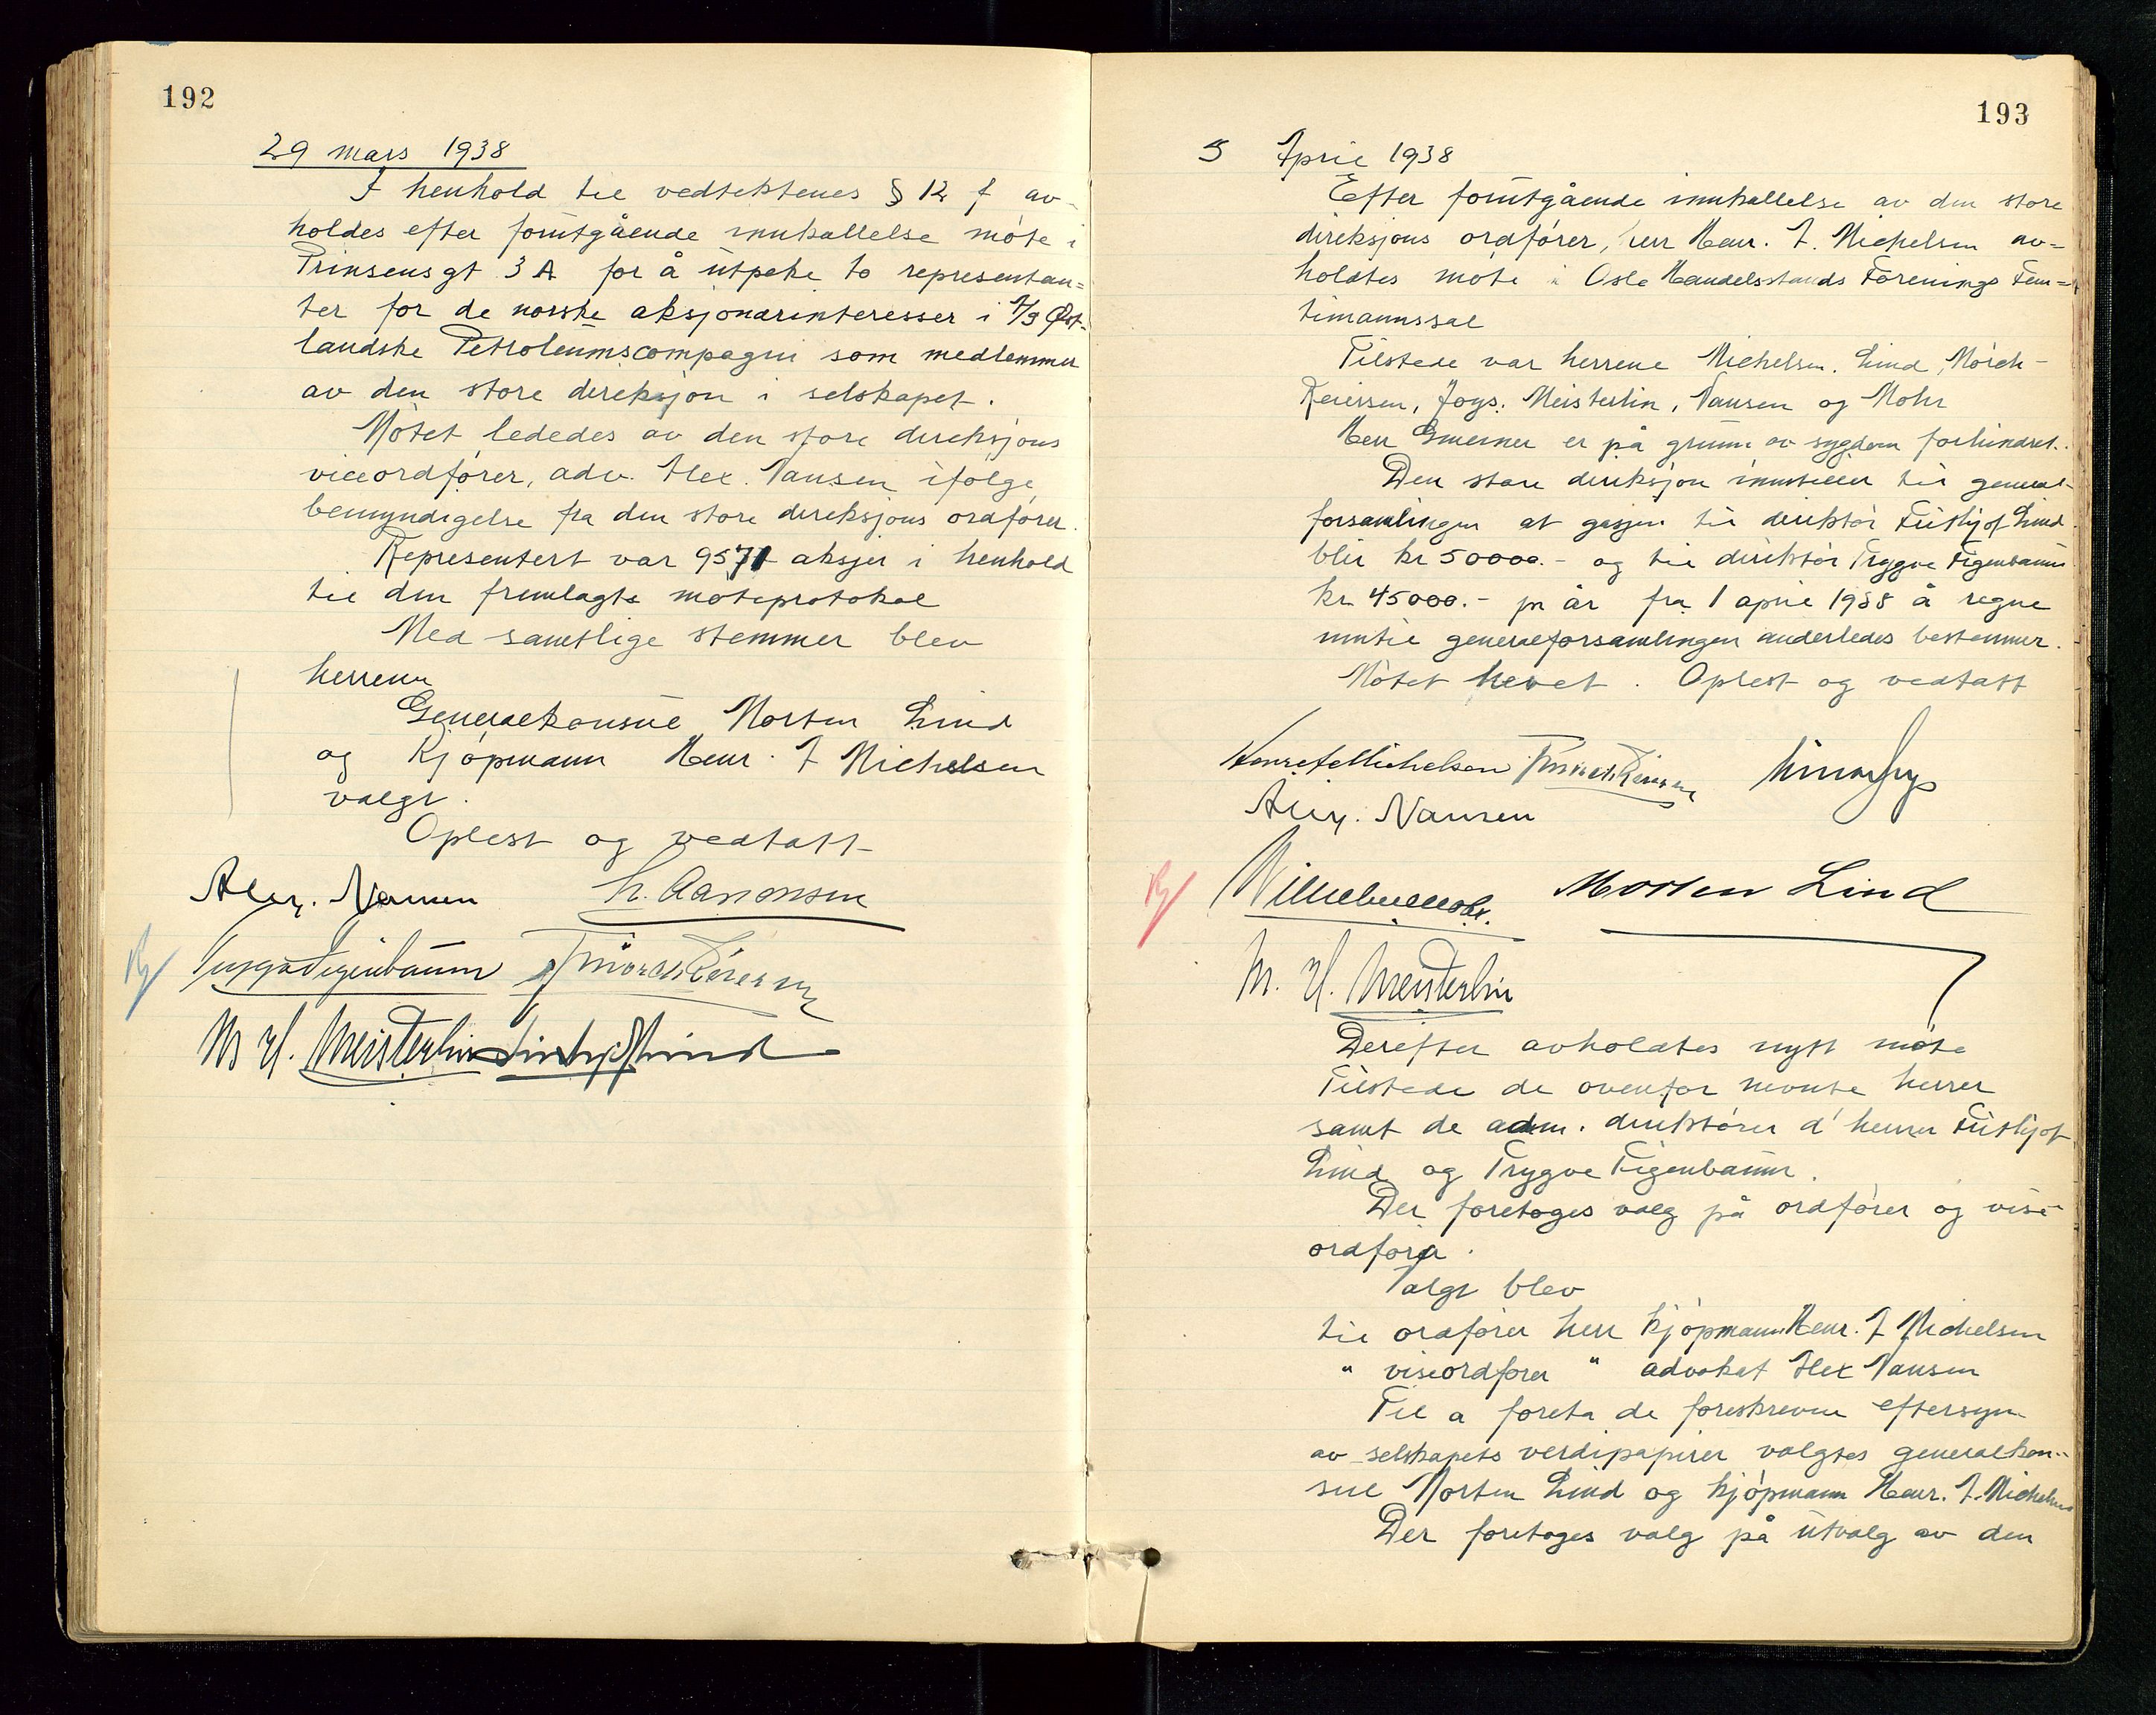 192
29 mars 1938
I henhold til vedtektenes § 12 f av-
holdes efter forutgående innkallelse møte i
Prinsensgt 3 A for å utpeke to representan=
ter for de norske aksjonærinteresser i A/S Øst-
landske Petroleumscompagni som medlemmer
av den store direksjon i selskapet.
Møtet lededes av den store direksjons
viceordfører, adv. Alex. Nansen ifølge
bemyndigelse fra den store direksjons ordfører.
Representert var 9571 aksjer i henhold
til den fremlagte møteprotokol
Med samtlige stemmer blev
herrene
Generalkonsul Morten Lind
og Kjøpmann Henr. A Michelsen
valgt.
Oplest og vedtatt
Alex. Nansen H. Aanonsen
Trygve Figenbaum Mørch Reiersen
M. H. Meisterlin Frithjof Lind
193
5 April 1938
Efter forutgående innkallelse av den store
direksjons ordfører, herr Henr. A. Michelsen av=
holdtes møte i Oslo Handelsstands Forenings Fem=
timannssal
Tilstede var herrene Michelsen. Lind, Mørch-
Reiersen, Joys. Meisterlin, Nansen og Mohr
Herr er på grunn av sygdom forhindret.
Den store direksjon innstiller til general-
forsamlingen at gasjen til direktør Frithjof Lind
blir kr 50000.- og til direktør Trygve Figenbaum
kr. 45000.- pr år fra 1 april 1938 å regne
inntil generalforsamlingen anderledes bestemmer.
Møtet hevet. Oplest og vedtatt
Henr A Michelsen Mørch Reiersen Joys
Alex. Nansen
Wilhelm Mohr. Morten Lind
M. H. Meisterlin
Derefter avholdtes nytt møte
Tilstede de ovenfor nevnte herrer
samt de adm. direktører d' herrer Frithjof
Lind og Trygve Figenbaum.
Der foretoges valg på ordfører og vise-
ordfører.
Valgt blev
til ordfører herr kjøpmann Henr. A Michelsen
" viseordfører " advokat Alex Nansen
Til a foreta de foreskrevne eftersyn
av selskapets verdipapirer valgtes generalkon-
sul Morten Lind og kjøpmann Henr. A. Michelsen
Der foretoges valg på utvalg av den